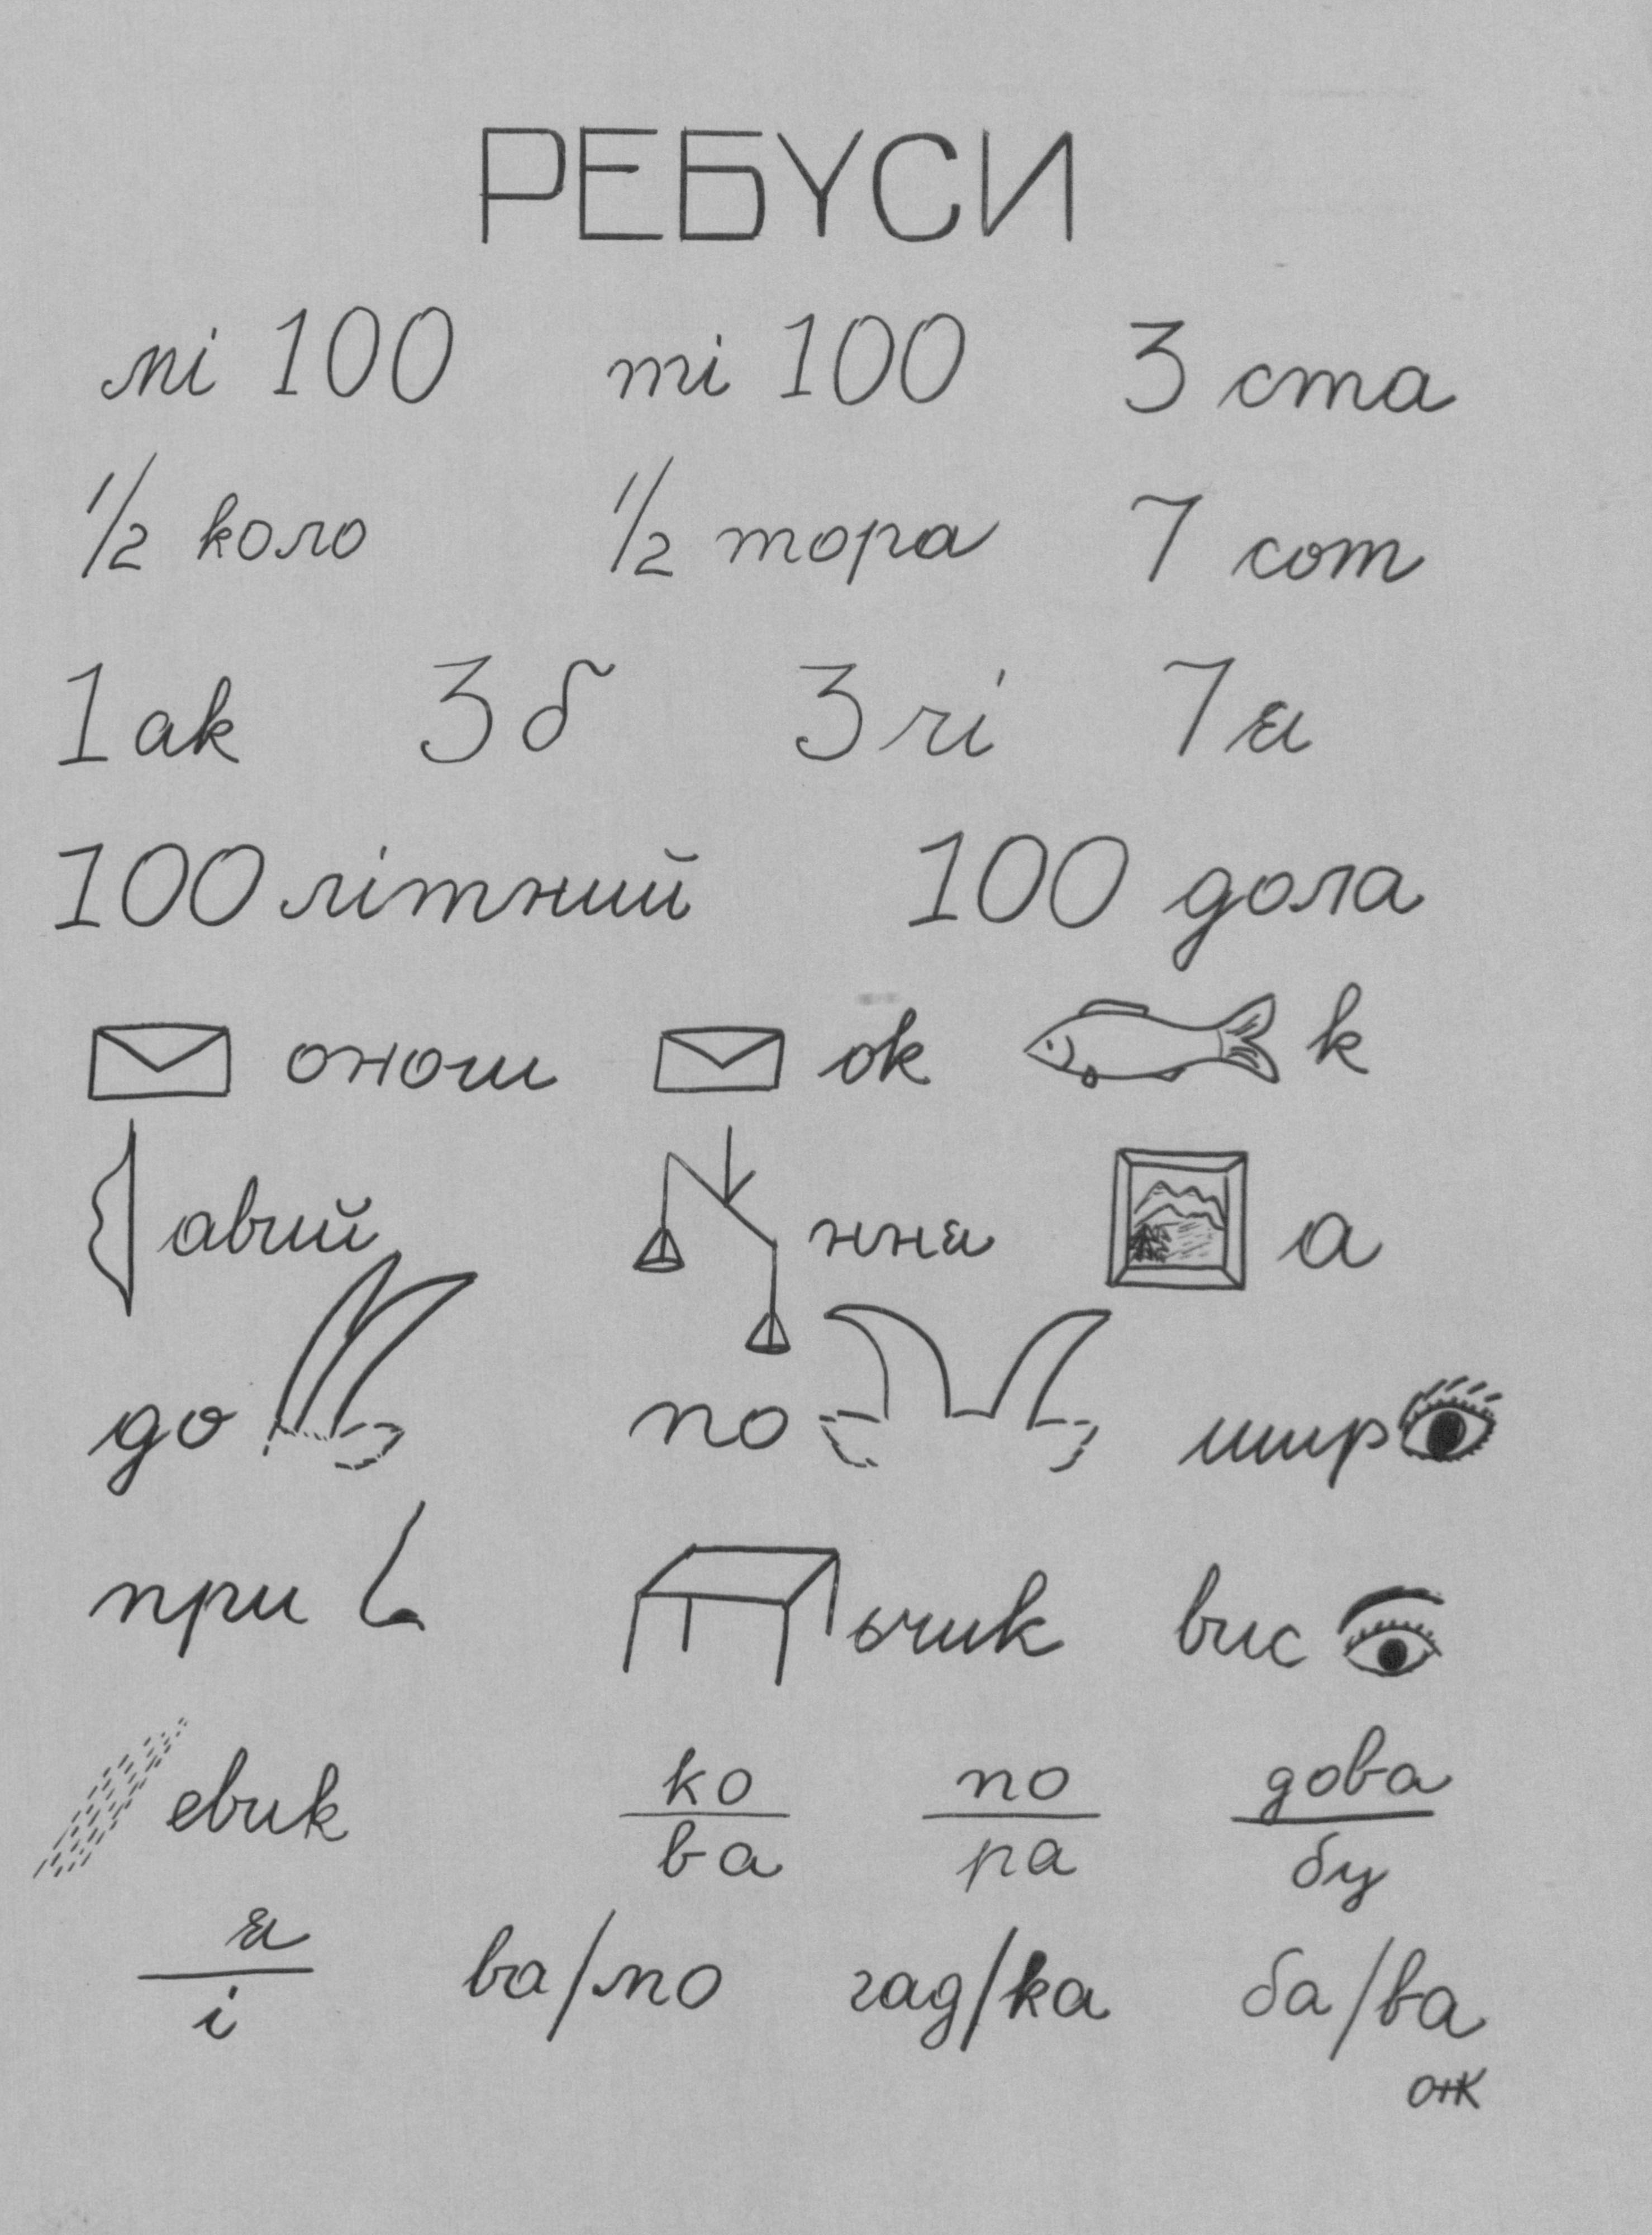 РЕБУСИ
мі 100 ті 100 3 ста
1/2 коло 1/2 тора 7 сот
1 ак 3 б 3 чі 7 я
100 літній 100 дола
онош ок к
авчий ння а
до по шир
при ьчик вис
евик ко/ва по/ра дова/бу
я/і ва/мо гад/ка ба/ва
ОЖ